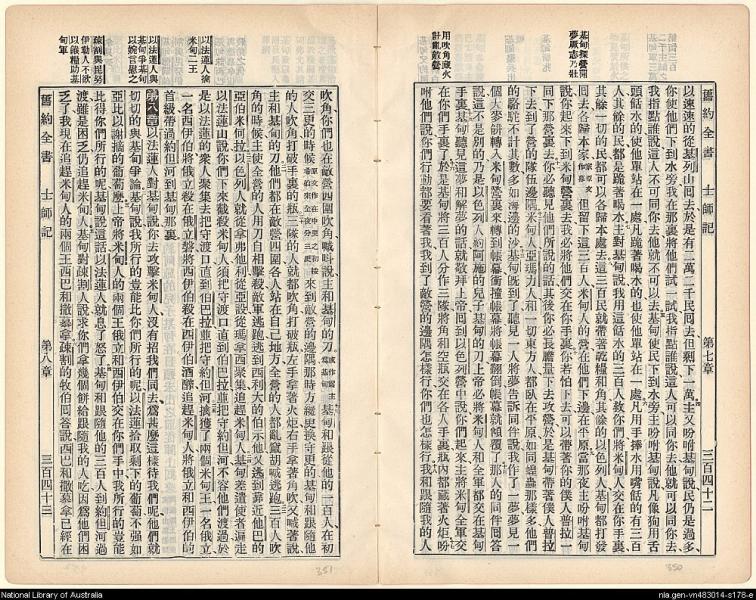 基甸探營聞
夢厥志乃壯
用吹角藏火
計亂敵營
舊約全書 士師記 第七章 三百四十二
以速速的從基列山囘去於是有二萬二千民囘去但剩下一萬主又吩咐基甸說民仍是過多
你使他們下水旁我在那裏將他們試一試我指點誰說這人可以同你去他就可以同你去
我指點誰說這人不可同你去他就不可以去基甸使民下到水旁主吩咐基甸說凡像狗用舌
頭餂水的使他單站在一處凡跪著喝水的也使他單站在一處凡用手捧水用嘴餂的有三百
人其餘的民都是跪著喝水主對基甸說我用這餂水的三百人救你們將米甸人交在你手裏
其餘一切的民都可以各歸本處去這三百民就帶著乾糧和角其餘的以色列人基甸都打發
囘去各歸本家但留下這三百人米甸人的營在他們下邊在平原當那夜主吩咐基甸
說你起來下到米甸營裏去我必將他們交在你手裏你若怕下去可以帶著你的僕人普拉一
同下那營裏去你必聽見他們所說的話其後你必長膽量下去攻營於是基甸帶著僕人普拉
下去到了營的隊伍邊隅米甸人亞瑪力人和一切東方人都臥在平原如同蝗蟲那樣多他們
的駱駝不計其數多如海邊的沙基甸旣到了聽見一人將夢吿訴同伴說我作了一夢夢見一
個大麥餅轉入米甸營裏來轉到帳幕衝撞帳幕將帳幕翻倒帳幕就傾覆了那人的同伴囘答
說這不是別的乃是以色列人約阿施的兒子基甸的刀上帝必將米甸人和全軍都交在基甸
手裏基甸聽見這夢和解夢的話就敬拜上帝囘到以色列營中說你們起來主將米甸全軍交
在你們手裏了於是基甸將三百人分作三隊將角和空瓶交在各人手裏瓶內都藏著火炬吩
咐他們說你們行動都要看著我我到了敵營的邊隅怎樣行你們也怎樣行我和跟隨我的人
350
以法蓮人擒
米甸二王
以法蓮人與
基甸爭基甸
以婉言慰之
疎割與毘努
伊勒人不欲
以餱糧助基
甸軍
吹角你們也在敵營四圍吹角喊呌說主和基甸的刀基甸和跟從他的一百人在初
交三更的時候來到敵營的邊隅那時方纔更換守更的基甸和跟隨他
的人吹角打破手裏的瓶三隊的人就都吹角打破瓶左手拿著火炬右手拿著角吹又喊著說
主和基甸的刀他們都在敵營四圍各人站在自己地方全營的人都亂竄胡喊逃跑三百人吹
角的時候主使全營的人用刀自相擊殺敵軍逃跑逃到西利大的伯示他又逃到靠近他巴的
亞伯米何拉以色列人就從拿弗他利從亞設從瑪拿西聚集追趕米甸人基甸差遣使者遍走
以法蓮山說你們下來截殺米甸人須把守渡口直到伯巴拉並把守約但河不容他們渡過於
是以法蓮的衆人聚集去把守渡口直到伯巴拉並把守約但河擒獲了兩個米甸王一名俄立
一名西伊伯將俄立殺在俄立磐將西伊伯殺在西伊伯酒醡追趕米甸人將俄立和西伊伯的
首級帶過約但河到基甸那裏
第八章以法蓮人對基甸說你去攻擊米甸人沒有招我們同去爲甚麼這樣待我們呢他們就
切切的與基甸爭論基甸說我所行的豈能比你們所行的呢以法蓮拾取剩下的葡萄不强如
亞比以謝摘的葡萄麼上帝將米甸人的兩個王俄立和西伊伯交在你們手中我所行的豈能
比得你們所行的呢基甸說這話以法蓮人就息了怒了基甸和跟隨他的三百人到約但河過
渡雖是困乏仍追趕米甸人基甸對疎割人說求你們拿幾個餅給跟隨我的人吃因爲他們困
乏了我現在追趕米甸人的兩個王西巴和撒慕拿疎割的牧伯囘答說西巴和撒慕拿已經在
舊約全書 士師記 第八章 三百四十三
351
National Library of Australia
nla.gen-vn483014-s178-e